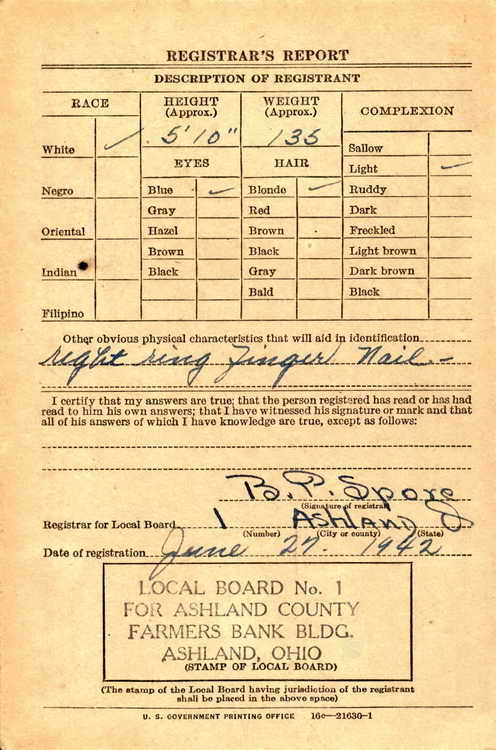 REGISTRAR'S REPORT
DESCRIPTION OF REGISTRANT
RACE
HEIGHT
(Approx.)
WEIGHT
(Approx.)
COMPLEXION
5' 10"
135
White
Sallow
EYES
HAIR
Light
Negro
Blue
Blonde
Ruddy
Gray
Red
Dark
Oriental
Hazel
Brown
Freckled
Brown
Black
Light brown
Indian
Black
Gray
Dark brown
Bald
Black
Filipino
Other obvious physical characteristics that will aid in identification
right ring Finger Nail -
I certify that my answers are true; that the person registered has read or has had
read to him his own answers; that I have witnessed his signature or mark and that
all of his answers of which I have knowledge are true, except as follows:
B. P. Spore
(Signature of registrar)
Registrar for Local Board 1 Ashland
(Number) (City or county) (State)
Date of registration June 27. 1942
LOCAL BOARD No. 1
FOR ASHLAND COUNTY
FARMERS BANK BLDG.
ASHLAND, OHIO
(STAMP OF LOCAL BOARD)
(The stamp of the Local Board having jurisdiction of the registrant
shall be placed in the above space)
U. S. GOVERNMENT PRINTING OFFICE 16c—21630-1